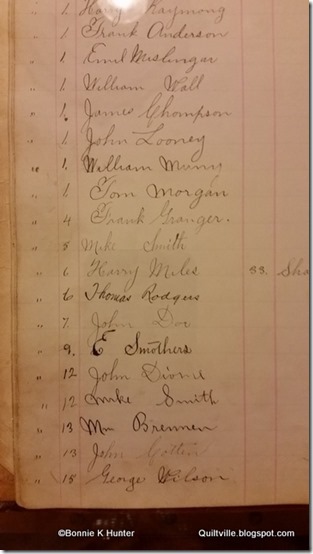 " 1. Harry Raymong
" 1. Frank Anderson
" 1. Emil Mislingar
" 1. William Wall
" 1. James Thompson
" 1. John Looney
" 1. William
" 1. Tom Morgan
" 4 Frank Granger.
" 5 Mike Smith
" 6 Harry Miles 33. Sha
" 6 Thomas Rodgers
" 7. John Doe
" 9. E Smothers
" 12 John
" 12 Mike Smith
" 13 Wm Brennen
" 13 John Cotten
" 15 George Wilson
©Bonnie K Hunter Quiltville.blogspot.com